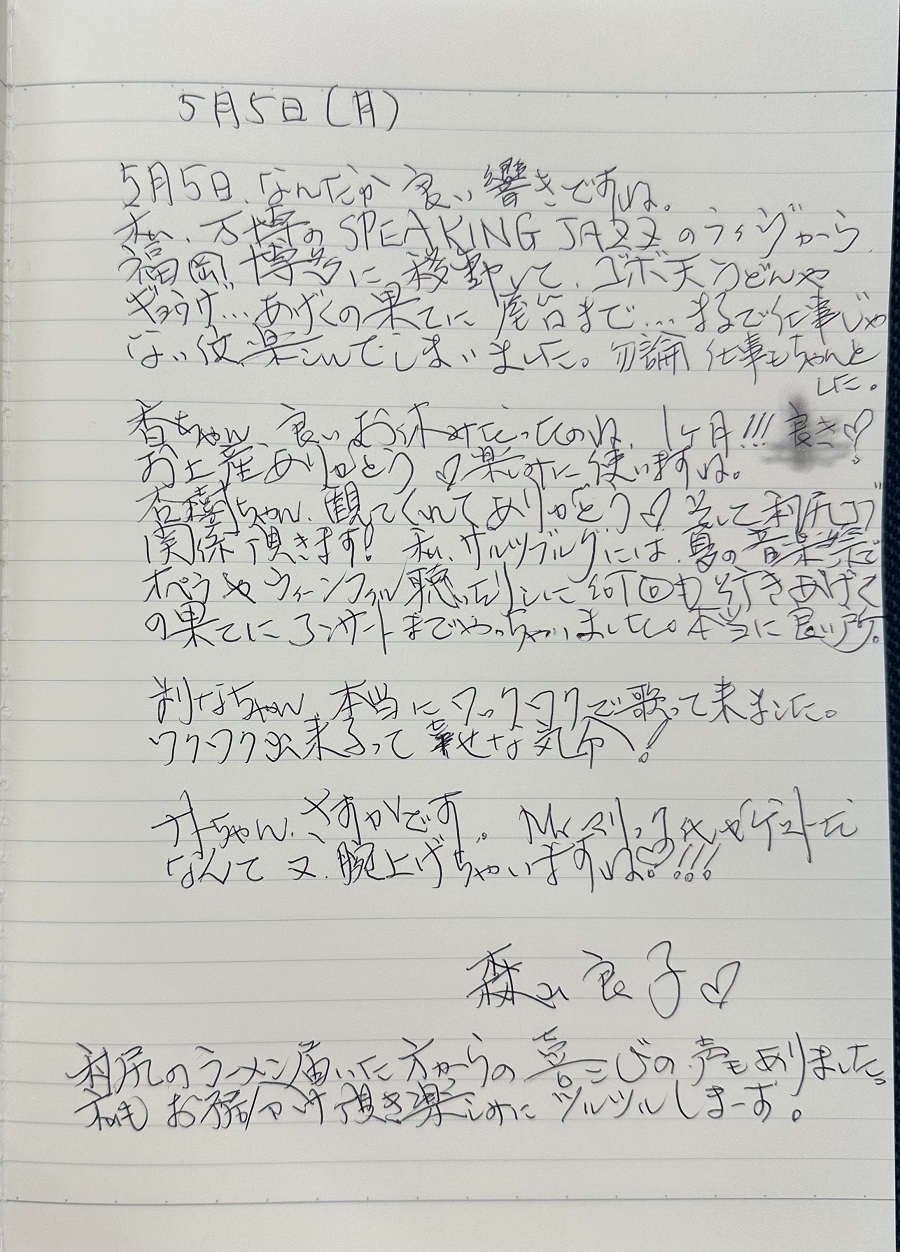 5月5日(月)
5月5日、なんだか良い響きですね。
私、万博の SPEAKING JAZZ のラージから
福岡 博多に移動して、ゴボ天うどんや
ギョウザ…あげくの果てに屋台まで…まるで仕事じゃ
ない位楽しんでしまいました。勿論 仕事もちゃんと
した。
香ちゃん、良いお休みだったのね、1ヶ月!!! 良き♡
お土産ありがとう♡楽しみに使いますね。
杏樹ちゃん、観てくれてありがとう♡そして利尻コブ
関係 頂きます! 私、サルツブルグには夏の音楽祭で
オペラやウィーンフィル聴いたりしに何回も行きあげく
の果てにコンサートまでやっちゃいました。本当に良い所。
ちゃん、本当にワックワクで歌って来ました。
ワクワク出来るって幸せな気分!
ナナちゃん、さすがです。Mr マリック氏がゲストだ
なんて又、腕上げちゃいますね♡!!!
森山良子♡
利尻のラーメン届いた方からの喜こびの声もありました。
私も お裾分け頂き楽しみにツルツルしまーす。